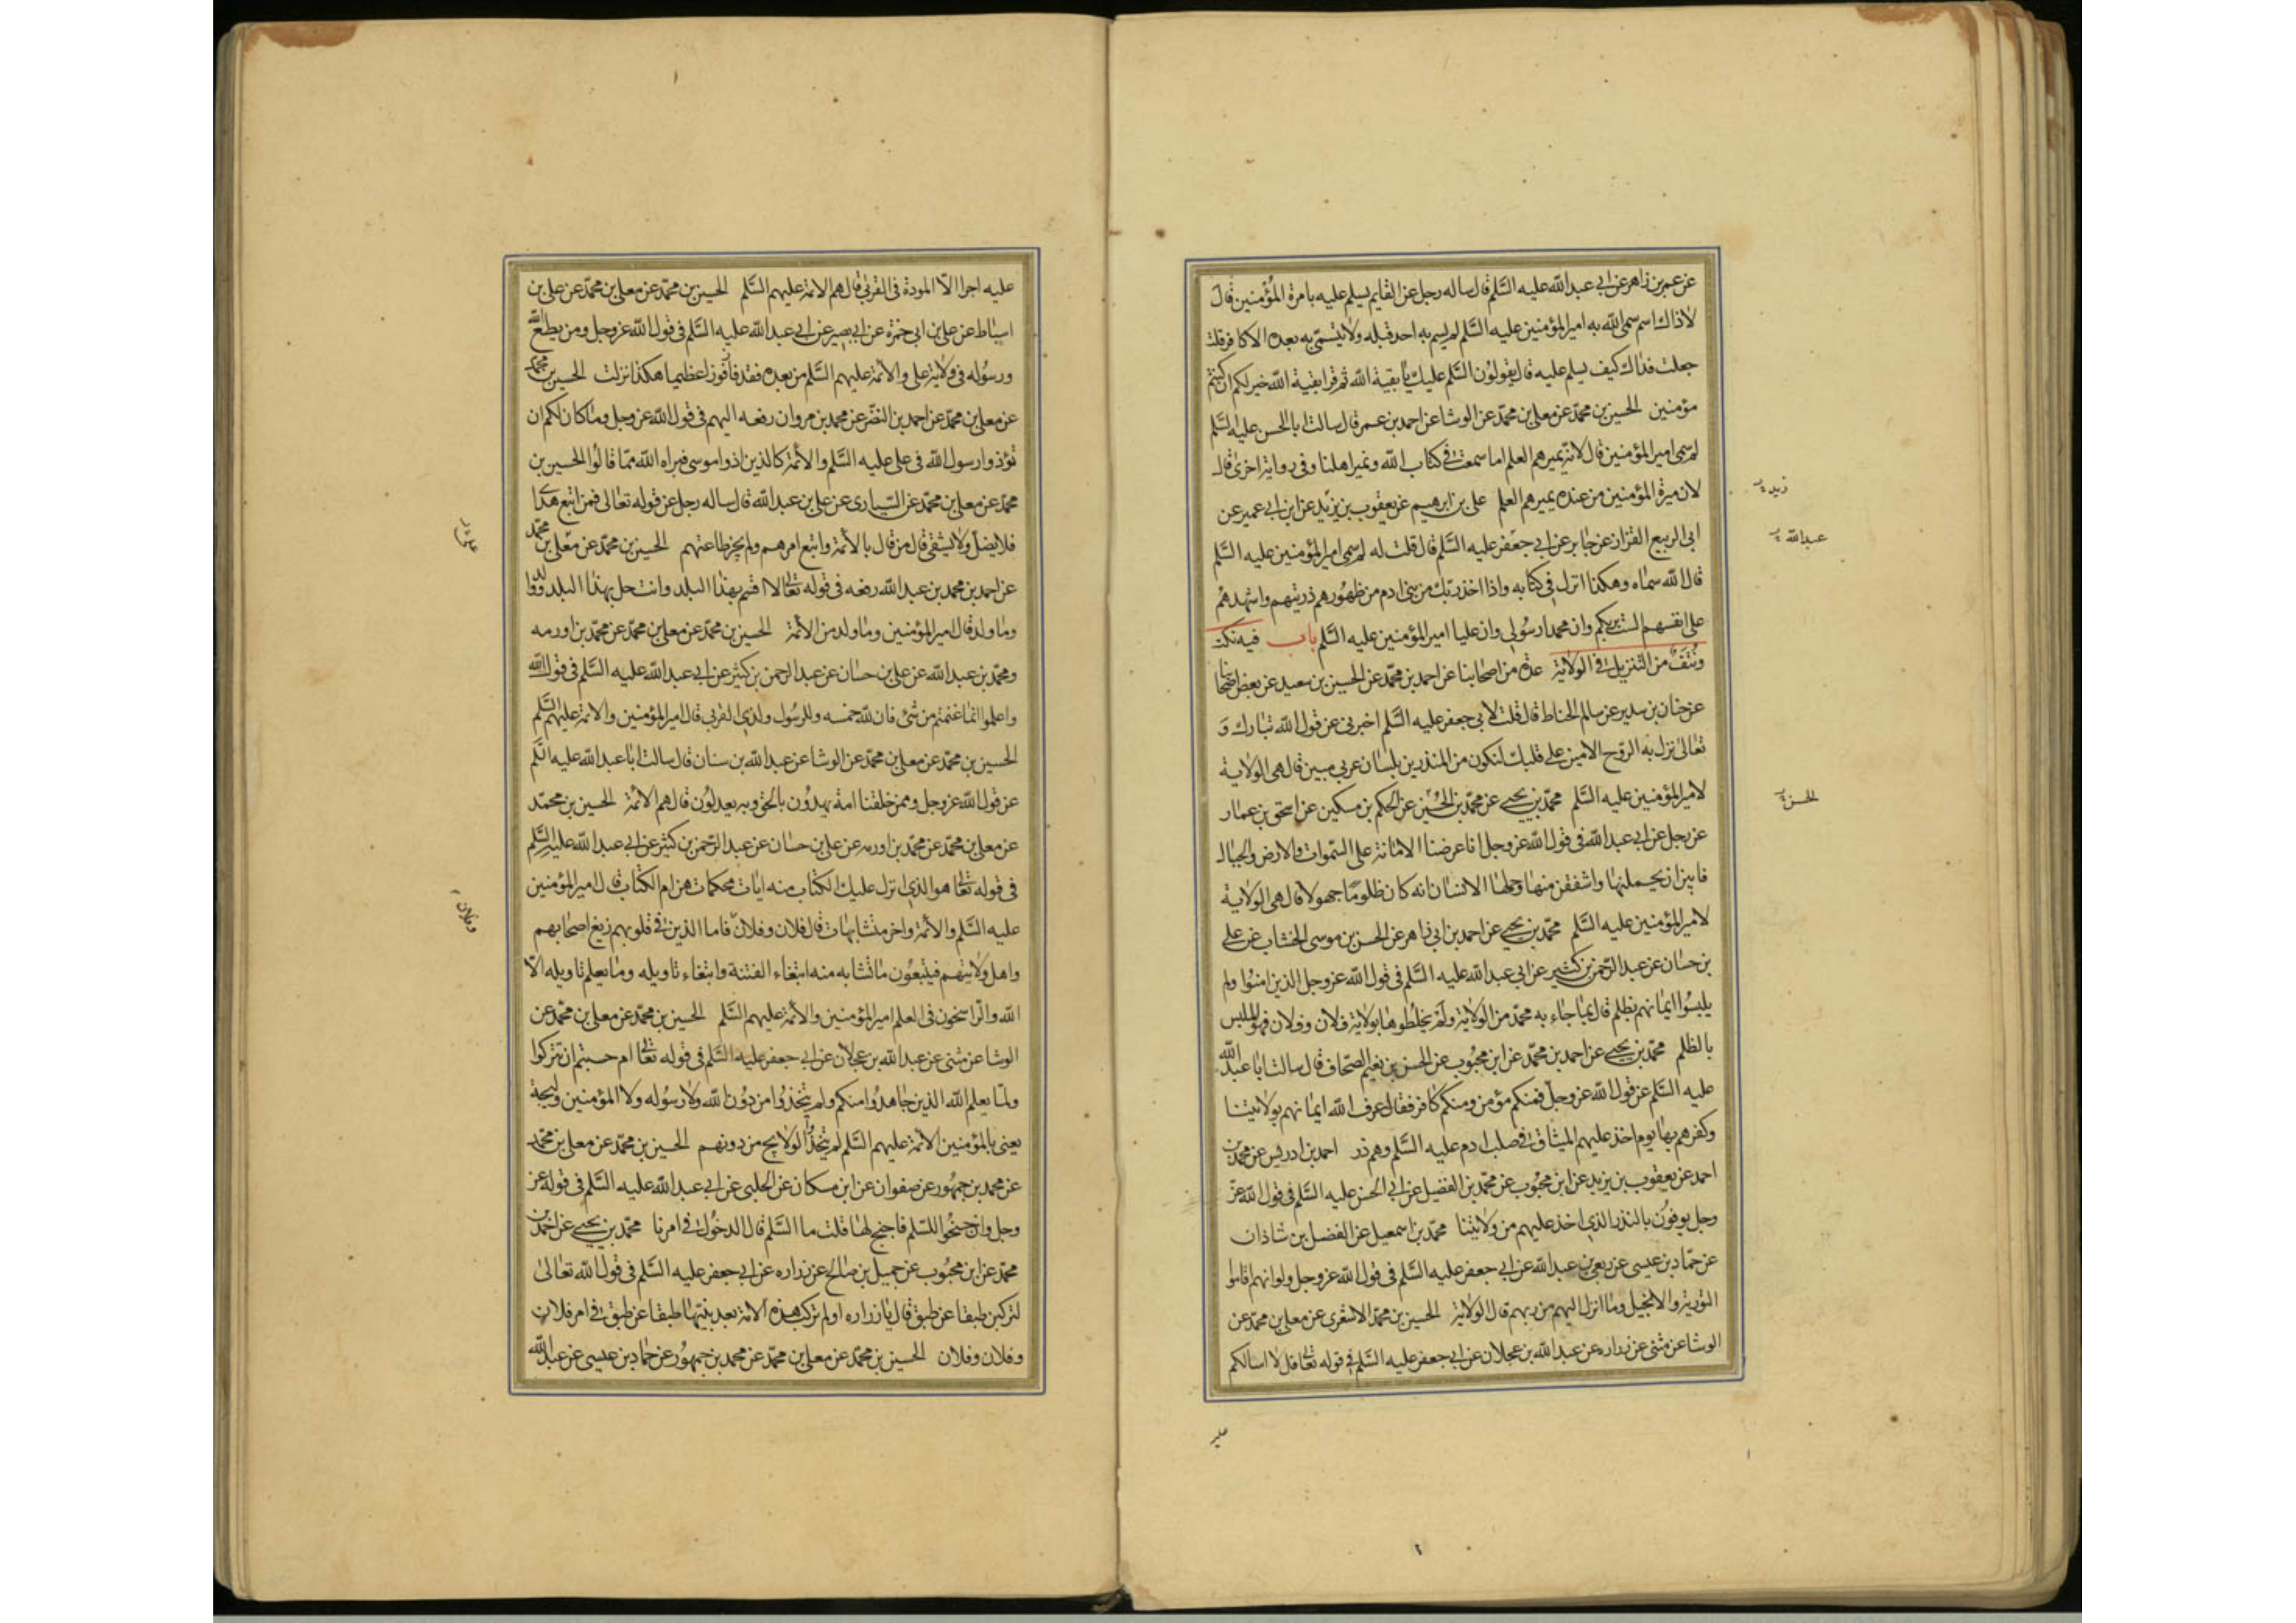 عن عمر بن زاهر عن ابي عبد الله عليه السَّلم قال ساله رجل عن القايم يسلم عليه بامرة المؤمنين قال
لا ذاك اسم سمى الله به امير المؤمنين عليه السَّلم لم يسم به احد قبله ولا يتسمى به بعده الا كافر قلت
جعلت فداك كيف يسلم عليه قال يقولون السَّلم عليك يا بقية الله ثم قرا بقية الله خير لكم ان كنتم
مؤمنين الحسين بن محمّد عن معلى بن محمّد عن الوشا عن احمد بن عمر قال سالت ابا الحسن عليه السَّلم
لم سمى امير المؤمنين قال لانّه يميرهم العلم اما سمعت في كتاب الله ونمير اهلنا وفى رواية اخرى قال
لان ميرة المؤمنين من عنده يميرهم العلم على بن ابرهيم عن يعقوب بن يزيد عن ابن ابي عمير عن
ابى الربيع القزاز عن جابر عن ابي جعفر عليه السَّلم قال قلت له لم سمى امير المؤمنين عليه السَّلم
قال الله سماه وهكذا انزل في كتابه واذا اخذ ربّك من بنى ادم من ظهورهم ذريتهم واشهدهم
على انفسهم الست بربكم وان محمدا رسولى وان عليا امير المؤمنين عليه السَّلم باب فيه نكت
ونتف من التنزيل في الولاية عدة من اصحابنا عن احمد بن محمّد عن الحسين بن سعيد عن بعض اصحابنا
عن حنان بن سدير عن سالم الحناط قال قلت لابي جعفر عليه السَّلم اخبرنى عن قول الله تبارك و
تعالى نزل به الروح الامين على قلبك لتكون من المنذرين بلسان عربي مبين قال هي الولاية
لامير المؤمنين عليه السَّلم محمّد بن يحيى عن محمّد بن الحسين عن الحكم بن مسكين عن اسحق بن عمار
عن رجل عن ابى عبد الله فى قول الله عز وجل انا عرضنا الامانة على السّموات والارض والجبال
فابين ان يحملنها واشفقن منها وحملها الانسان انه كان ظلوما جهولا قال هى الولاية
لامير المؤمنين عليه السَّلم محمّد بن يحيى عن احمد بن ابى زاهر عن الحسن بن موسى الخشاب عن على
بن حسان عن عبد الرّحمن بن كثير عن ابى عبد الله عليه السَّلم فى قول الله عز وجل الذين امنوا ولم
يلبسوا ايمانهم بظلم قال بما جاء به محمّد من الولاية ولم يخلطوها بولاية فلان وفلان فهو الملبس
بالظلم محمّد بن يحيى عن احمد بن محمّد عن ابن محبوب عن الحسن بن نعيم الصّحاف قال سالت ابا عبد الله
عليه السَّلم عن قول الله عز وجلّ فمنكم مؤمن ومنكم كافر فقال عرف الله ايمانهم بولايتنا
وكفرهم بها يوم اخذ عليهم الميثاق في صلب ادم عليه السَّلم وهم ذر احمد بن ادريس عن محمد بن
احمد عن يعقوب بن يزيد عن ابن محبوب عن محمّد بن الفضيل عن ابي الحسن عليه السَّلم فى قول الله عز
وجل يوفون بالنذر الذى اخذ عليهم من ولايتنا محمّد بن اسمعيل عن الفضل بن شاذان
عن حمّاد بن عيسى عن ربعى بن عبد الله عن ابي جعفر عليه السَّلم فى قول الله عز وجل ولو انهم اقاموا
التورية والانجيل وما انزل اليهم من ربهم قال الولاية الحسين بن محمّد الاشعرى عن معلى بن محمّد عن
الوشا عن مثنى عن زراره عن عبد الله بن عجلان عن ابي جعفر عليه السَّلم في قوله تعالى قل لا اسالكم
زيد
عبد الله
الحسن
عليه
عليه اجرا الّا المودة فى القربى قال هم الائمة عليهم السَّلم الحسين بن محمّد عن معلى بن محمّد عن على بن
اسباط عن على بن ابى حمزة عن ابي بصير عن ابي عبد الله عليه السَّلم فى قول الله عز وجل ومن يطع الله
ورسوله فى ولاية على والائمة عليهم السَّلم من بعده فقد فاز فوزا عظيما هكذا نزلت الحسين بن محمّد
عن معلى بن محمّد عن احمد بن النضر عن محمد بن مروان رفعه اليهم فى قول الله عز وجل وما كان لكم ان
تؤذوا رسول الله فى على عليه السَّلم والائمة كالذين اذوا موسى فبراه الله ممّا قالوا الحسين بن
محمّد عن معلى بن محمّد عن السّيارى عن على بن عبد الله قال ساله رجل عن قوله تعالى فمن اتبع هداى
فلا يضل ولا يشقى قال من قال بالائمة واتبع امرهم ولم يجز طاعتهم الحسين بن محمّد عن معلى بن محمّد
عن احمد بن محمد بن عبد الله رفعه فى قوله تعالى لا اقسم بهذا البلد وانت حل بهذا البلد ووالد
وما ولد قال امير المؤمنين وما ولد من الائمة الحسين بن محمّد عن معلى بن محمّد عن محمّد بن اورمه
ومحمّد بن عبد الله عن على بن حسان عن عبد الرحمن بن كثير عن ابي عبد الله عليه السَّلم فى قول الله
واعلموا انما غنمتم من شئ فان لله خمسه وللرسول ولذى القربى قال امير المؤمنين والائمة عليهم السَّلم
الحسين بن محمّد عن معلى بن محمّد عن الوشا عن عبد الله بن سنان قال سالت ابا عبد الله عليه السَّلم
عن قول الله عز وجل وممن خلقنا امة يهدون بالحق وبه يعدلون قال هم الائمة الحسين بن محمّد
عن معلى بن محمّد عن محمّد بن اورمه عن على بن حسان عن عبد الرّحمن بن كثير عن ابي عبد الله عليه السَّلم
فى قوله تعالى هو الذى انزل عليك الكتاب منه ايات محكمات هن ام الكتاب قال امير المؤمنين
عليه السَّلم والائمة واخر متشابهات قال فلان وفلان فاما الذين في قلوبهم زيغ اصحابهم
واهل ولايتهم فيتبعون ما تشابه منه ابتغاء الفتنة وابتغاء تاويله وما يعلم تاويله الّا
الله والرّاسخون فى العلم امير المؤمنين والائمة عليهم السَّلم الحسين بن محمّد عن معلى بن محمّد عن
الوشا عن مثنى عن عبد الله بن عجلان عن ابي جعفر عليه السَّلم فى قوله تعالى ام حسبتم ان تتركوا
ولمّا يعلم الله الذين جاهدوا منكم ولم يتخذوا من دون الله ولا رسوله ولا المؤمنين وليجة
يعنى بالمؤمنين الائمة عليهم السَّلم لم يتخذوا الولايج من دونهم الحسين بن محمّد عن معلى بن محمّد
عن محمد بن جمهور عن صفوان عن ابن مسكان عن الحلبى عن ابي عبد الله عليه السَّلم فى قوله عز
وجل وان جنحوا للسّلم فاجنح لها قلت ما السَّلم قال الدخول في امرنا محمّد بن يحيى عن احمد بن
محمّد عن ابن محبوب عن جميل بن صالح عن زراره عن ابي جعفر عليه السَّلم فى قول الله تعالى
لتركبن طبقا عن طبق قال يا زراره اولم تركب هذه الامة بعد نبيها طبقا عن طبق في امر فلان
وفلان وفلان الحسين بن محمّد عن معلى بن محمّد عن محمد بن جمهور عن حماد بن عيسى عن عبد الله
وفلان